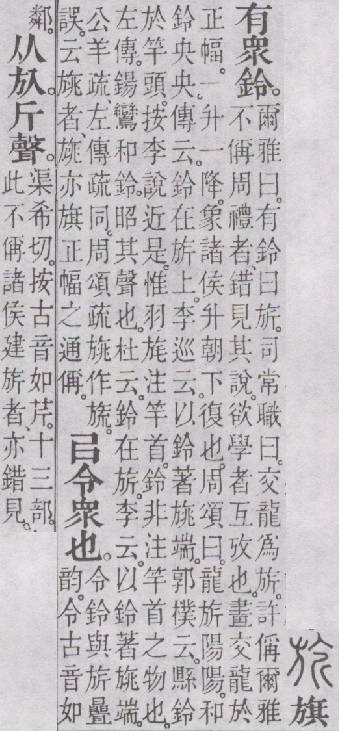 旂旗
有眾鈴。
爾雅曰。有鈴曰旂。司常職曰。交龍爲旂。許偁爾雅
不偁周禮者、錯見其說。欲學者互攷也。畫交龍於
正幅。一升一降。象諸侯升朝下復也。周頌曰。龍旂陽陽。和
鈴央央。傳云。鈴在旂上。李巡云。以鈴著旐端。郭樸云。縣鈴
於竿頭。按李說近是。惟羽旄注竿首。鈴非注竿首之物也。
左傳。鍚鸞和鈴。昭其聲也。杜云。鈴在旂。李云。以鈴著旐端。
公羊疏、左傳疏同。周頌疏旐作旒。
誤。云旐者、旐亦旗正幅之通偁。
㠯令眾也。
令鈴與旂疊
韵。令古音如
鄰。
从㫃斤聲。
渠希切。按古音如芹。十三部。
此不偁諸侯建旂者亦錯見。